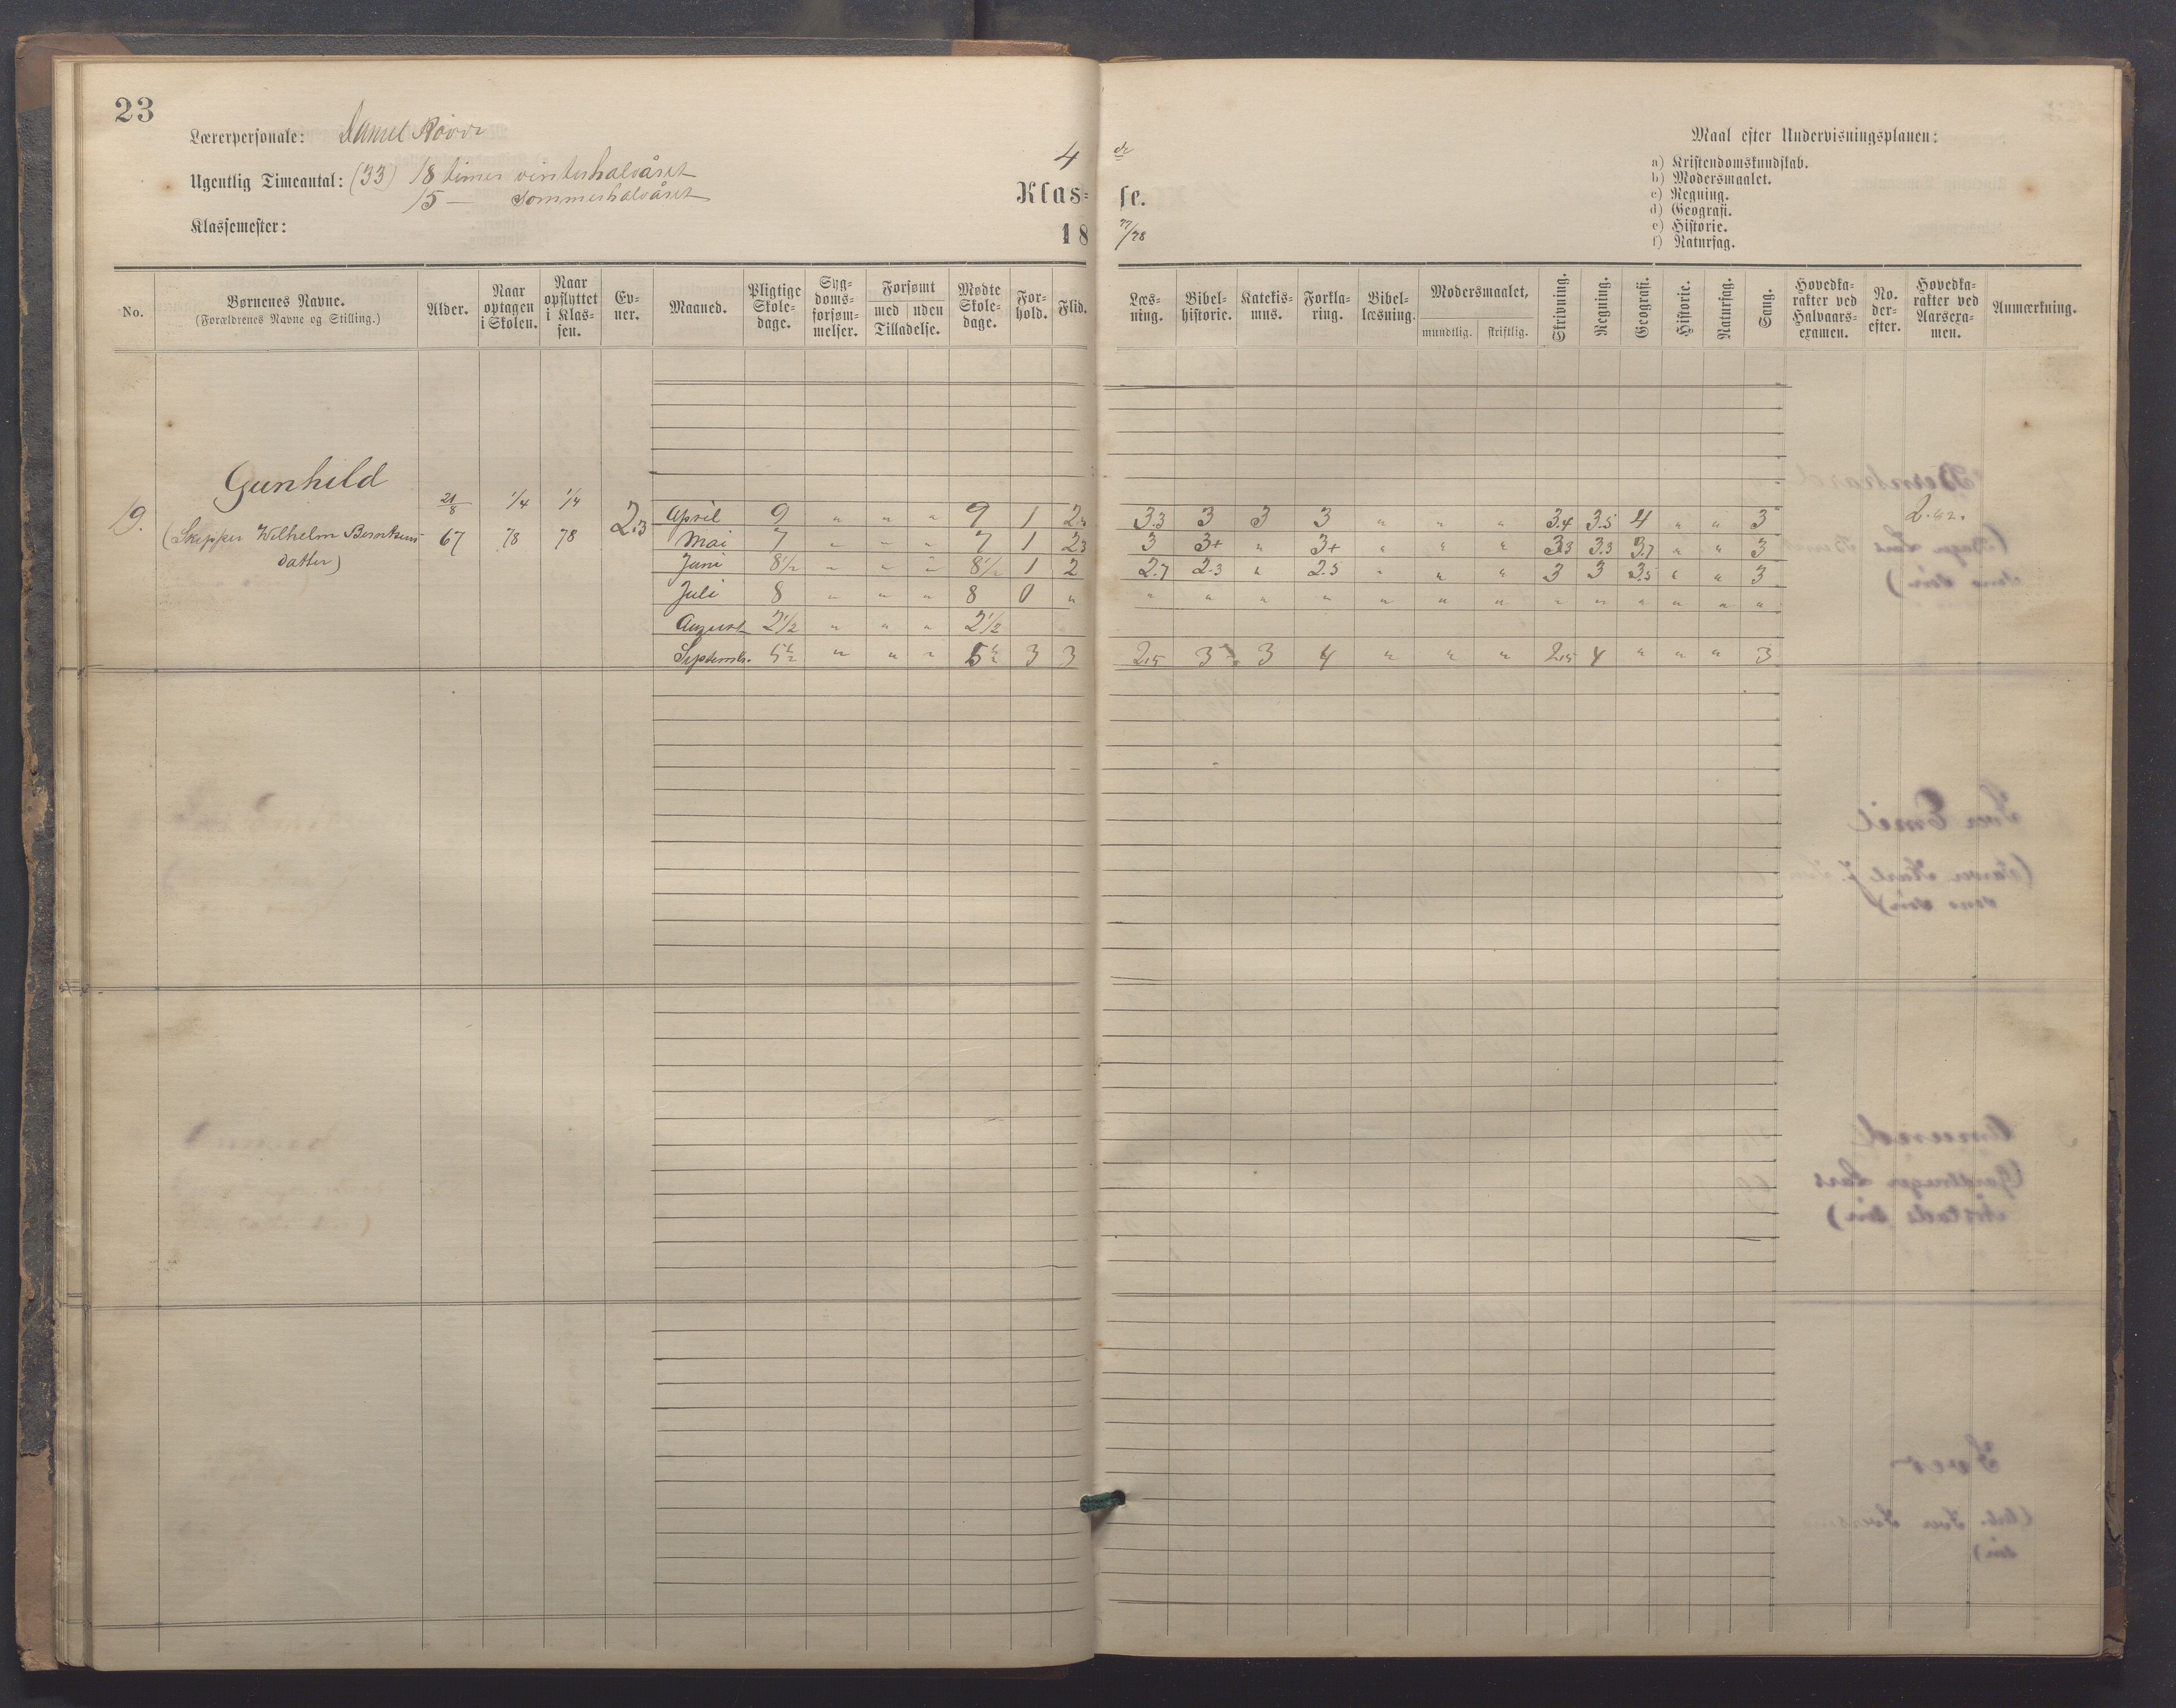 23
Lærerpersonale: Daniel
Ugentlig Timeantal: (33) 18 timer vinterhalvåret
15 — Sommerhalvåret
Klassemester:
4 de
Klas= se.
18 77/78
Maal efter Undervisningsplanen:
a) Kristendomskundskab.
b) Modersmaalet.
c) Regning.
d) Geografi.
e) Historie.
f) Naturfag.
No. Børnenes Navne. (Forældrenes Navne og Stilling.) Alder. Naar optagen i Skolen. Naar opflyttet i Klassen. Ev-ner. Maaned. Pligtige Skole-dage. Syg-doms-forsøm-melser. Forsømt med uden Tilladelse. Mødte Skole-dage. For-hold. Flid. Læs-ning. Bibel-historie. Katekis-mus. Forkla-ring. Bibel-læsning. Modersmaalet, mundtlig. skriftlig. Skrivning. Regning. Geografi. Historie. Naturfag. Sang. Hovedka-rakter ved Halvaars-examen. No. der-efter. Hovedka-rakter ved Aarsexa-men. Anmærkning.
19. Gunhild
(Skipper Wilhelm
datter)
21/8 67 1/4 78 1/4 78 2.3
April 9 " " " 9 1 2.3 3.3 3 3 3 " " " 3.4 3.5 4 " " 3
Mai 7 " " " 7 1 2.3 3 3+ " 3+ " " " 3.3 3.3 3.7 " " 3
Juni 8½ " " " 8½ 1 2 2.7 2.3 " 2.5 " " " 3 3 3.5 " " 3
Juli 8 " " " 8 0 " " " " " " " " " " " " " "
August 2½ " " " 2½
Septemb. 5½ " " " 5½ 3 3 2.5 3 3 4 " " " 2.5 4 " " " 3